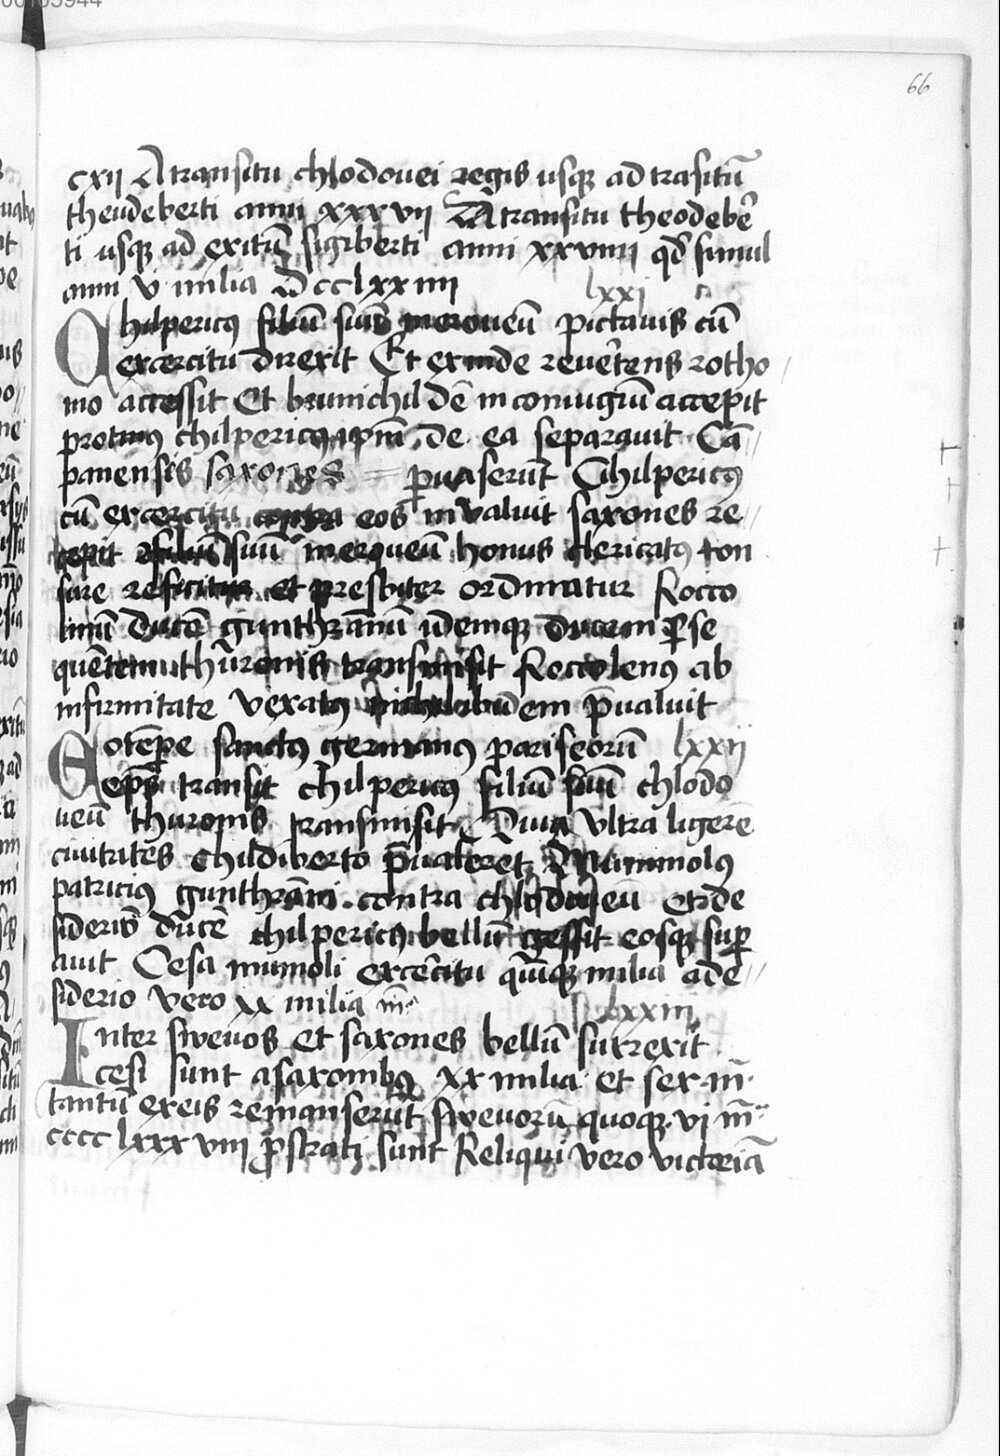 66
cxij A transitu chlodouei regis usqꝫ ad trasitū
theudeberti anni xxxvij A transitu theodeb̄e
ti usqꝫ ad exitū sigiberti anni xxviiij qd̄ simul
anni v milia dcclxxiiij lxxi
Chilpericꝰ filiū suū meroueū pictauis cū
excercitu direxit Et exinde reuētens rotho
mo accessit Et brunichildē in coniugiū accepit
protinus chilpericꝰ ipm̄ de ea separauit Cā
panensis saxones p̄uaserūt Chilpericꝰ
cū excercitu contra eos inualuit saxones re
cepit filiū suū meroueū honus clericatꝰ ton
sure reficitur et presbiter ordinatur Rocco
linū ducē gunthrannū idemqꝫ ducem ꝑse
quētem thuronis transmisit Roccolenꝰ ab
infirmitate vexatꝰ nichil ibidem p̄ualuit
Eo tēpe sanctꝰ germanꝰ pariseorū lxxij
ep̄s transit chilpericꝰ filiū suū chlodo
ueū thuronis transmisit Qui ultra ligerē
ciuitatēs childiberto p̄ualeret Mummolꝰ
patriciꝰ gunthrāni contra chlodoueū et de
siderio ducē chilpericꝰ bellū gessit eosqꝫ suꝑ
auit Cesa mumoli excercitu quīqꝫ milia a de
siderio vero xx milia m̄ lxxiij
Inter sweuos et saxones bellū surrexit
cesi sunt a saxonibꝰ xx milia et sex m̄
tantū ex eis remanserūt sweuorū quoqꝫ vj m̄
cccc lxxxviij ꝓstrati sunt Reliqui vero victoriā